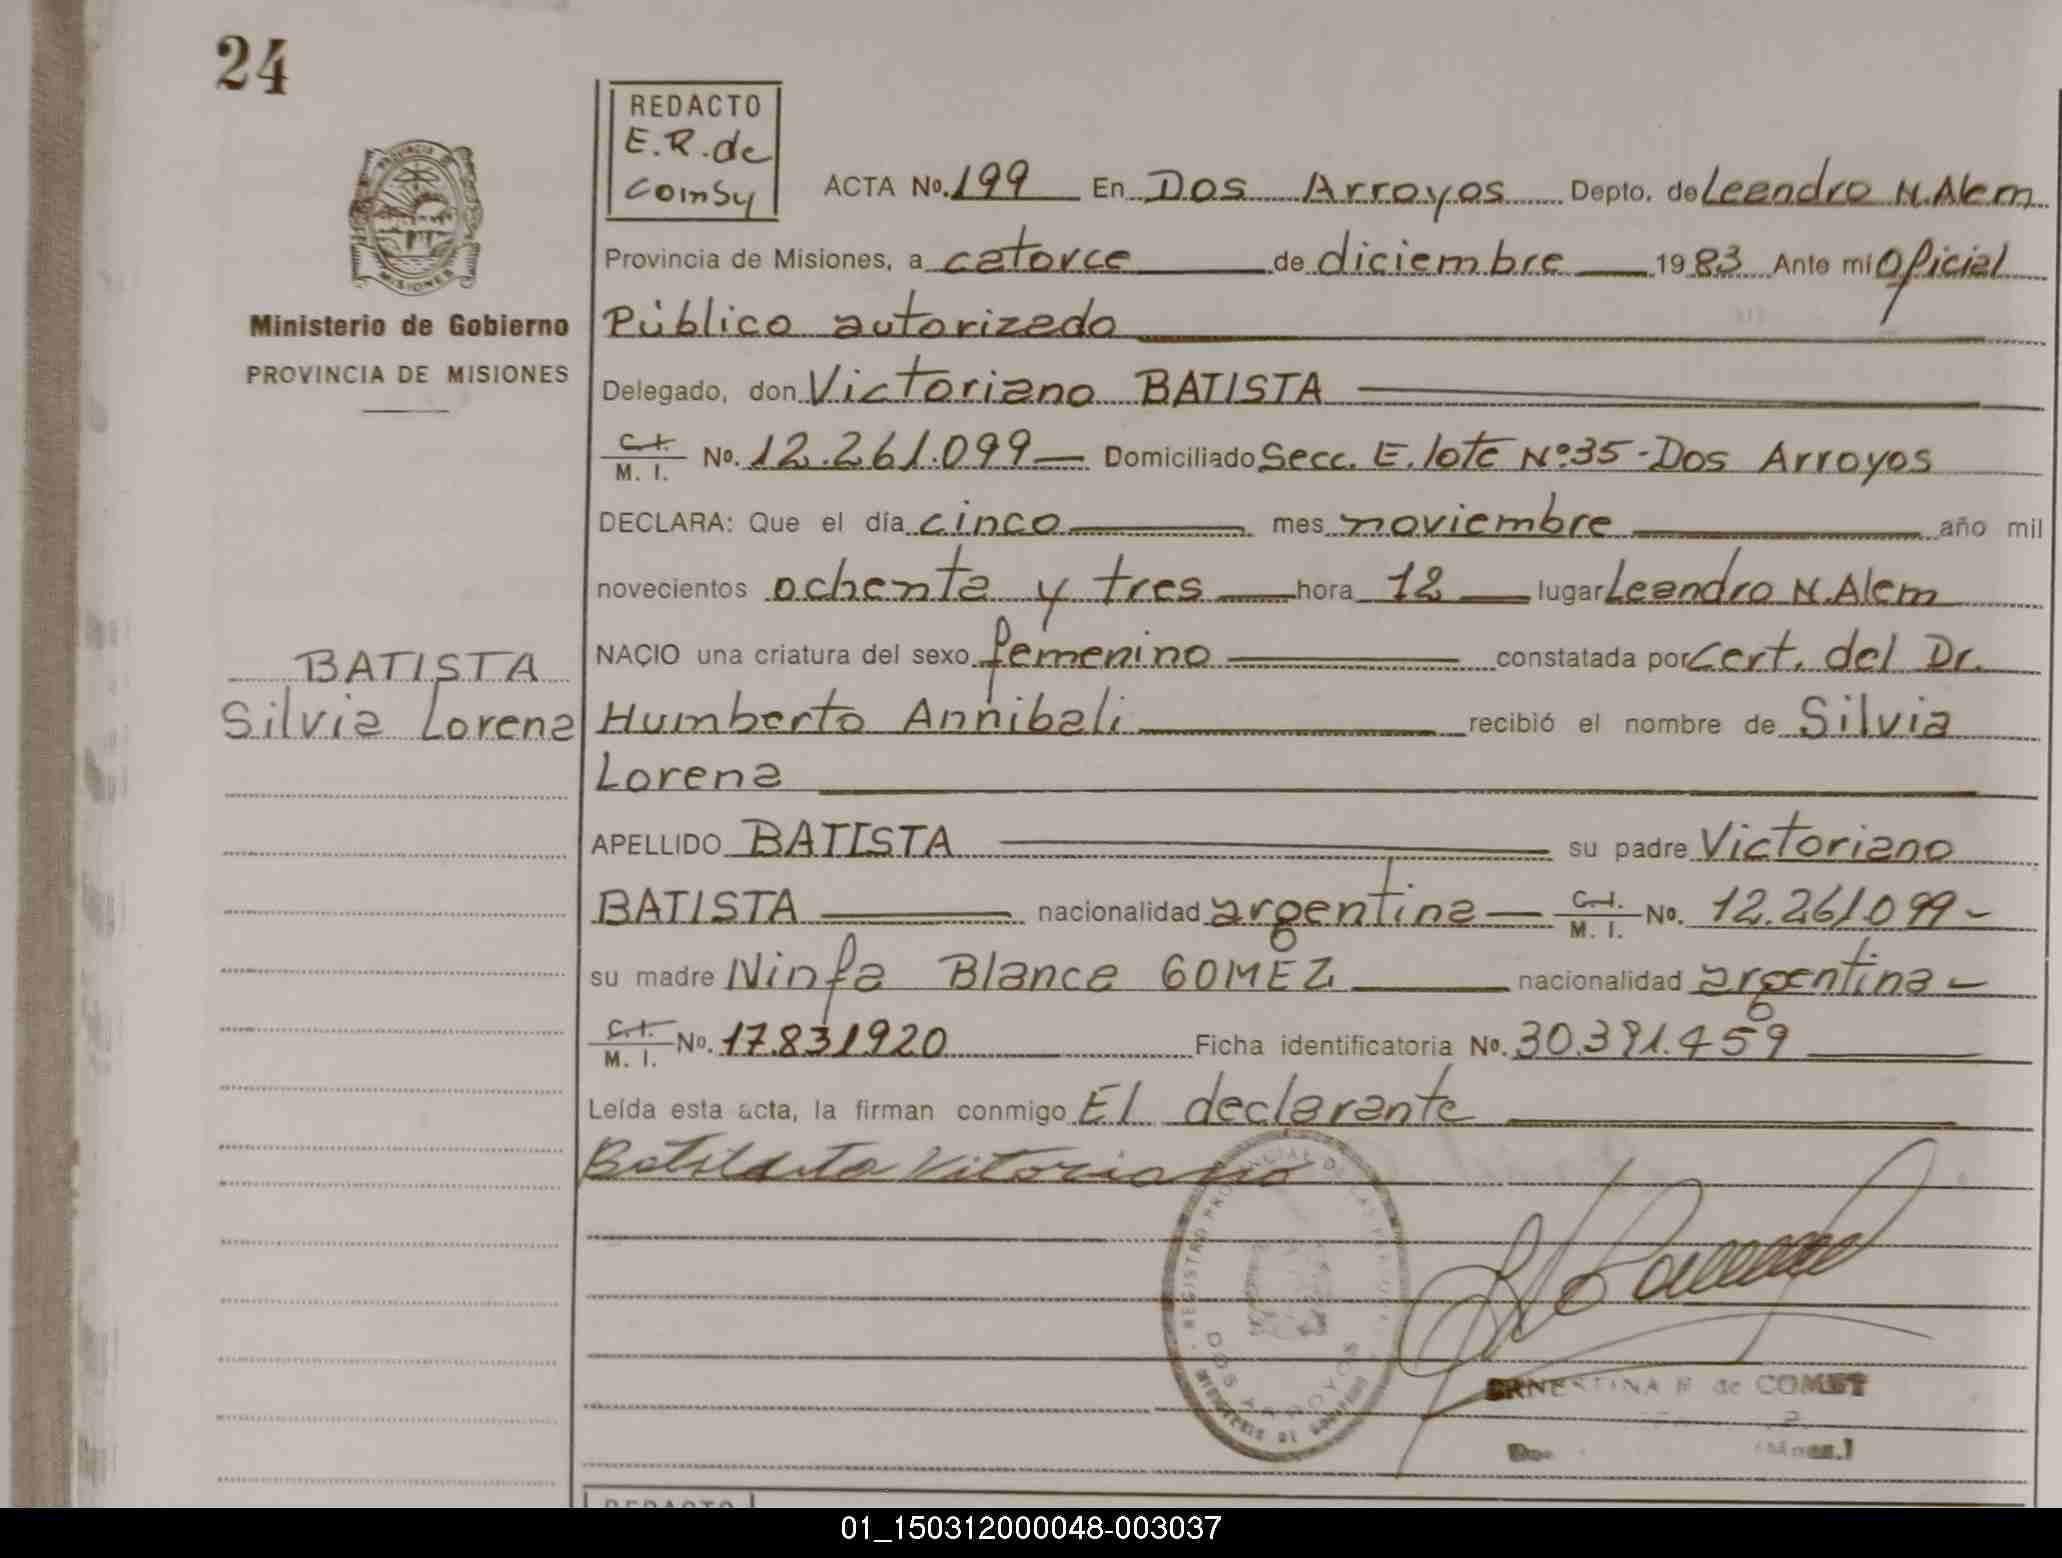 24
REDACTO
E.R. de
Comsy
ACTA No. 199 En Dos Arroyos Depto. de Leandro N. Alem
Provincia de Misiones, a catorce de diciembre 1983 Ante mí Oficial
Ministerio de Gobierno
PROVINCIA DE MISIONES
Público autorizado
Delegado, don Victoriano BATISTA
C.I. M. I. No. 12.261.099 Domiciliado Secc. E. lote Nº 35 - Dos Arroyos
DECLARA: Que el día cinco mes noviembre año mil
novecientos ochenta y tres hora 12 lugar Leandro N. Alem
NACIO una criatura del sexo femenino constatada por Cert. del Dr.
BATISTA
Silvia Lorena
Humberto Annibali recibió el nombre de Silvia
Lorena
APELLIDO BATISTA su padre Victoriano
BATISTA nacionalidad argentina C.I. M. I. No. 12.261.099-
su madre Ninfa Blanca GOMEZ nacionalidad argentina-
C.I. M. I. No. 17.831920 Ficha identificatoria No. 30.391.459
Leída esta acta, la firman conmigo El declarante
Vitoriano
REGISTRO PROVINCIAL DE LAS PERSONAS
DOS ARROYOS
ERNESTINA R de COMSY
REDACTO
01_150312000048-003037